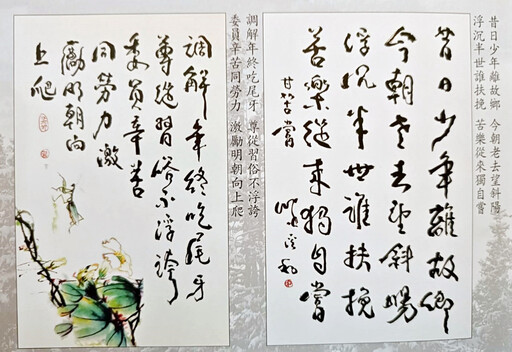 昔日少年離故鄉 今朝老去望斜陽
浮沉半世誰扶挽 苦樂從來獨自嘗
昔日少年離故鄉
今朝老去望斜陽
浮沉半世誰扶挽
苦樂從來獨自嘗
調解年終吃尾牙 尊從習俗不浮誇
委員辛苦同勞力 激勵明朝向上爬
調解年終吃尾牙
尊從習俗不浮誇
委員辛苦
同勞力激
勵明朝向
上爬